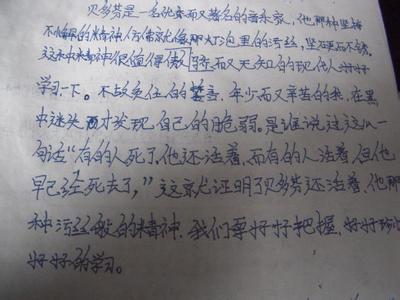 贝多芬是一名伟大而又著名的音乐家，他那种坚韧
不拔的精神仿佛就像那灯泡里的钨丝，坚硬而不
这种精神很值得傲骄而又无知的现代人好好
学习一下。不敢负任的誓言，年少而又辛苦的我，在黑
中迷失时才发现自己的脆弱。是谁说过这么一
句话“有的人死了，他还活着，而有的人活着，但他
早已经死去了，”这就尤证明了贝多芬还活着，他那
种钨丝般的精神，我们要好好把握，好好珍
好好的学习。